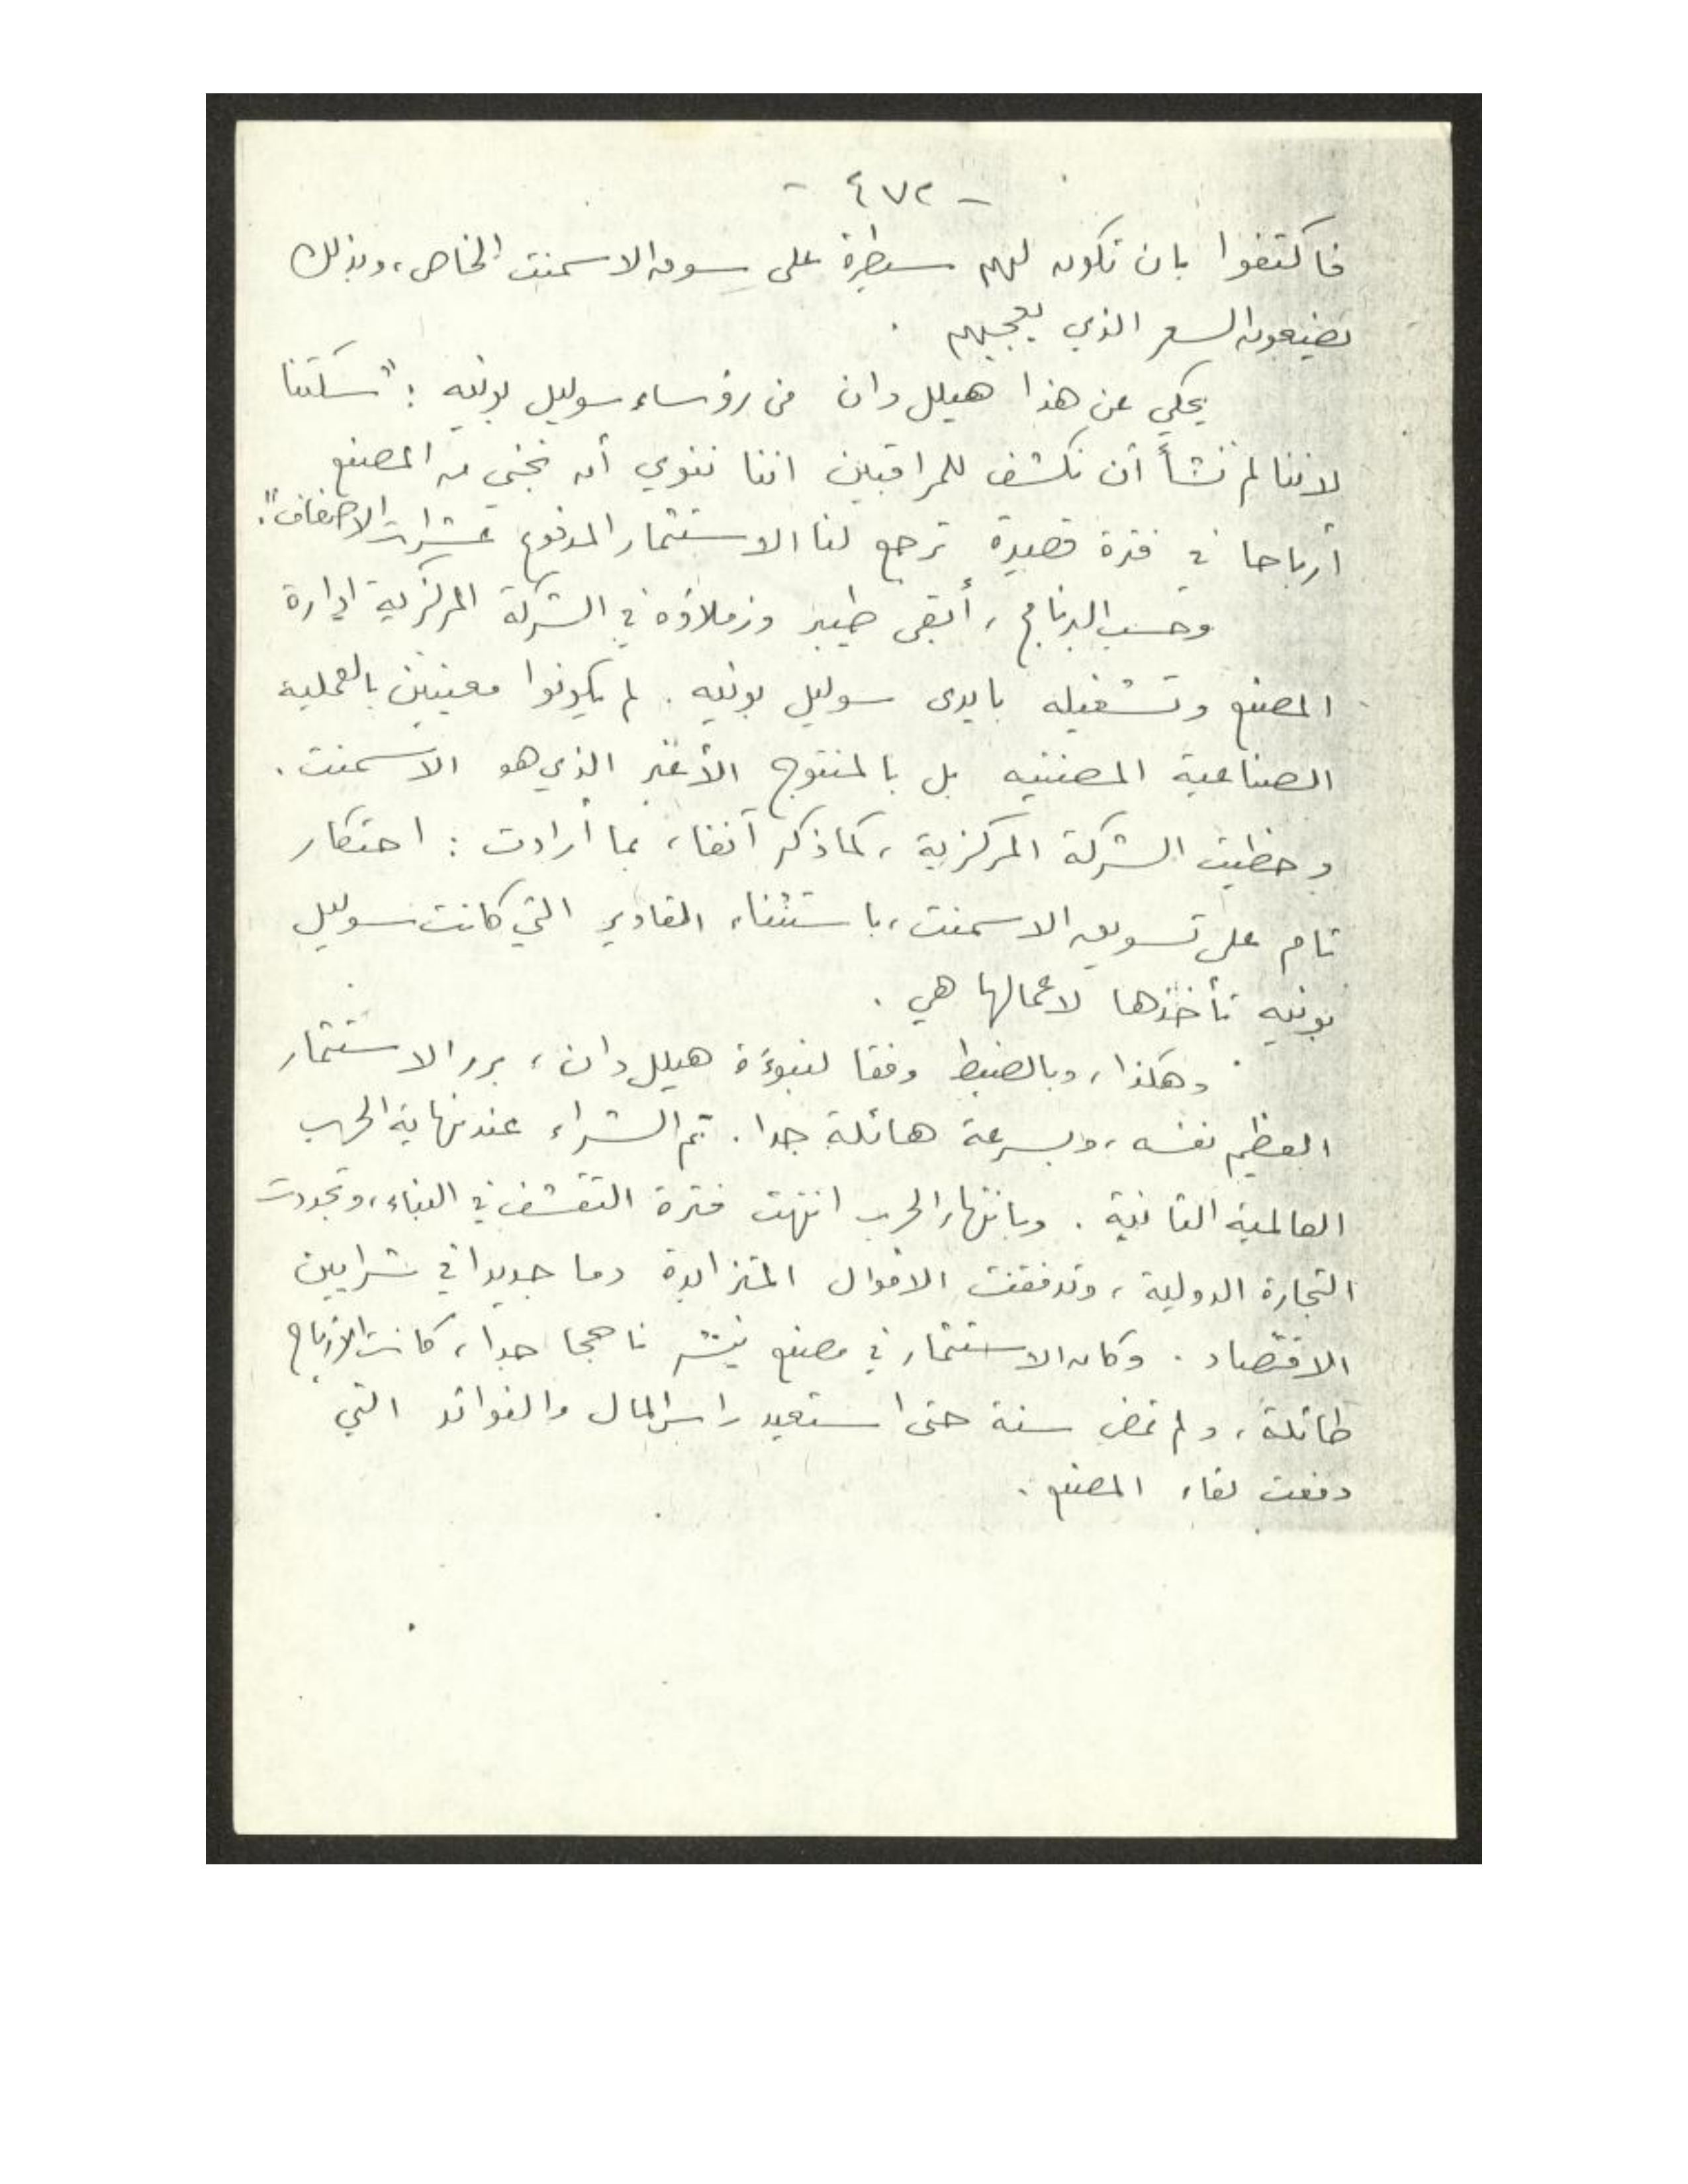 - ٤٧٢ -
فاكتفوا بان تكون لهم سيطرة على سوق الاسمنت الخاص، وبذلك
يضيعون السعر الذي يعجبهم .
يحكي عن هذا هيلل دان من رؤساء سوليل بونيه : "سكتنا
لاننا لم نشأ أن نكشف للمراقبين اننا ننوي أن نجني من المصنع
أرباحا في فترة قصيرة ترجع لنا الاستثمار المدفوع عشرات الاضعاف".
وحسب البرنامج ، أبقى طيبر وزملاؤه في الشركة المركزية ادارة
المصنع وتشغيله بايدى سوليل بونيه . لم يكونوا معنيين بالعملية
الصناعية المضنيه بل بالمنتوج الأخير الذي هو الاسمنت .
وحظيت الشركة المركزية ، كما ذكر آنفا ، بما أرادت : احتكار
تام على تسويق الاسمنت ، باستثناء المقادير التي كانت سوليل
بونيه تأخذها لاعمالها هي .
وهكذا ، وبالضبط وفقا لنبوءة هيلل دان ، برر الاستثمار
العظيم نفسه ، وبسرعة هائلة جدا . تم الشراء عند نهاية الحرب
العالمية الثانية . وبانتهاء الحرب انتهت فترة التقشف في البناء ، وتجددت
التجارة الدولية ، وتدفقت الاموال المتزايدة دما جديدا في شرايين
الاقتصاد . وكان الاستثمار في مصنع نيشر ناجحا جدا ، كانت الأرباح
طائلة ، ولم تمض سنة حتى استعيد راس المال والفوائد التي
دفعت لقاء المصنع .